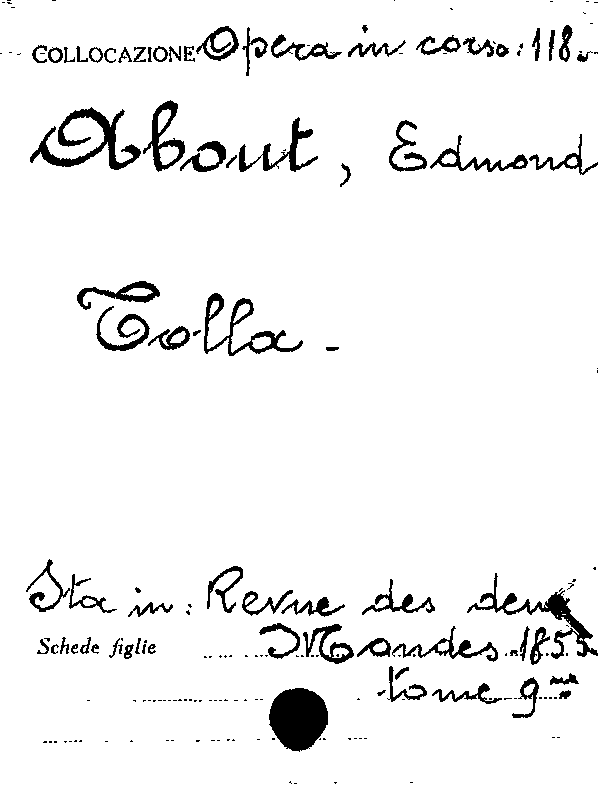 COLLOCAZIONE Opera in corso: 118.
About, Edmond
Tolla -
Sta in: Revue des deux
Schede figlie Mondes. 1855.
tome 9me